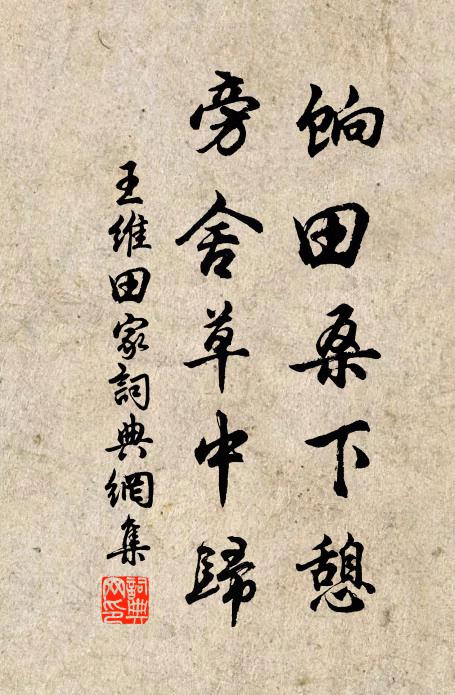 餉田桑下憩
旁舍草中歸
王維田家詞典網集
詞典網印